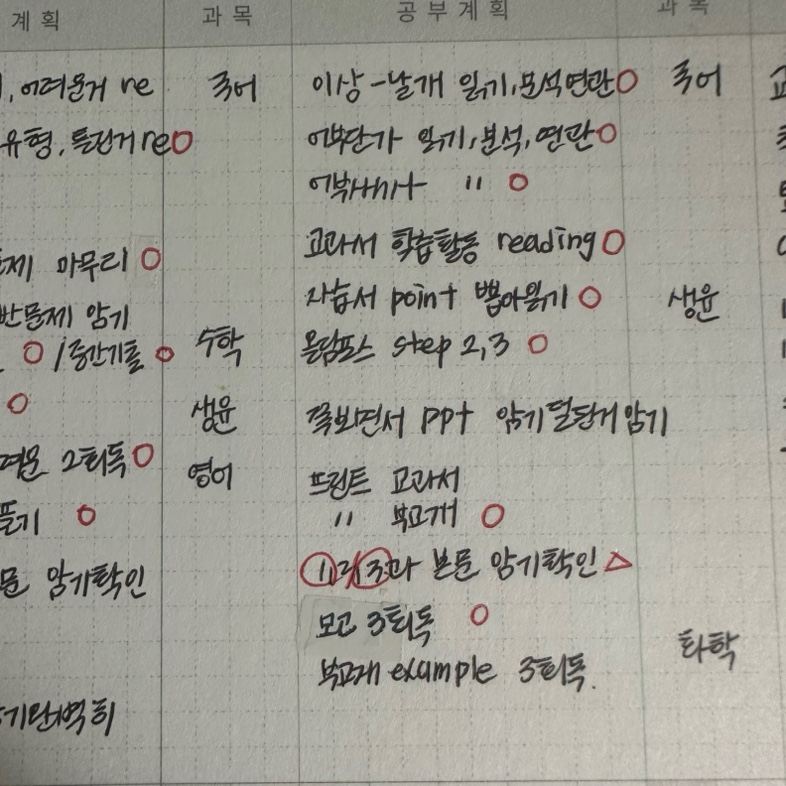 계획 과목 공부계획 과목
어려운거 re 국어 이상-날개 읽기, 분석 연관 국어
유형, 틀린거 re 어부단가 읽기, 분석, 연관
어부사시사 〃
마무리 교과서 학습활동 reading
반문제 암기 자습서 point 뽑아읽기 생윤
/중간기출 수학 올림포스 step 2,3
생윤 쭉보면서 ppt 암기덜된거 암기
2회독 영어 프린트 교과서
풀기 〃 부교재
암기확인 1,2,3과 본문 암기확인
모고 3회독
부교재 example 3회독. 화학
완벽히